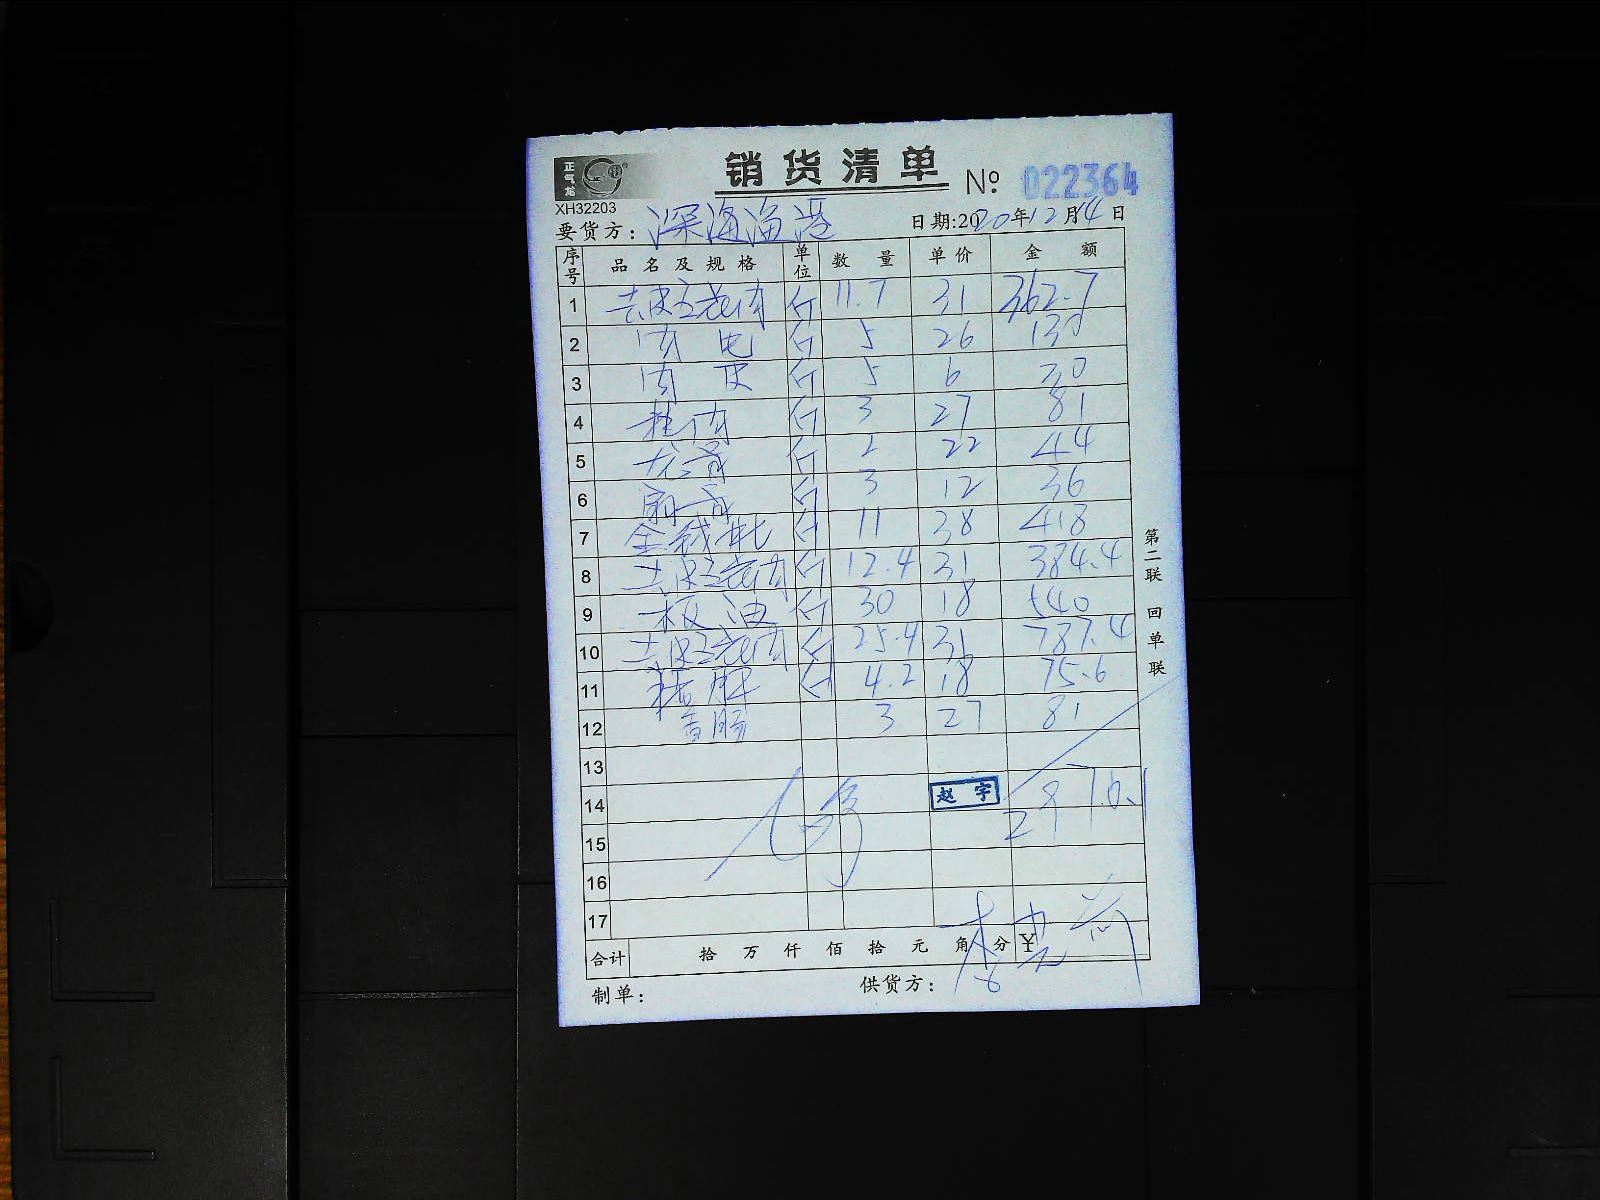 正气龙
销货清单
№ 022364
XH32203
要货方: 深海渔港 日期:2020年12月14日
序号 品名及规格 单位 数量 单价 金额
1 去皮五花肉 斤 11.7 31 362.7
2 肉 斤 5 26 130
3 肉皮 斤 5 6 30
4 肉 斤 3 27 81
5 龙骨 斤 2 22 44
6 扇骨 斤 3 12 36
7 金钱 斤 11 38 418
8 去皮五花肉 斤 12.4 31 384.4
9 板油 斤 30 18 540
10 去皮五花肉 斤 25.4 31 787.4
11 猪肝 斤 4.2 18 75.6
12 3 27 81
13
14 赵宇 2970.1
15
16
17
合计 拾万仟佰拾元角分 ¥
制单: 供货方:
第二联 回单联